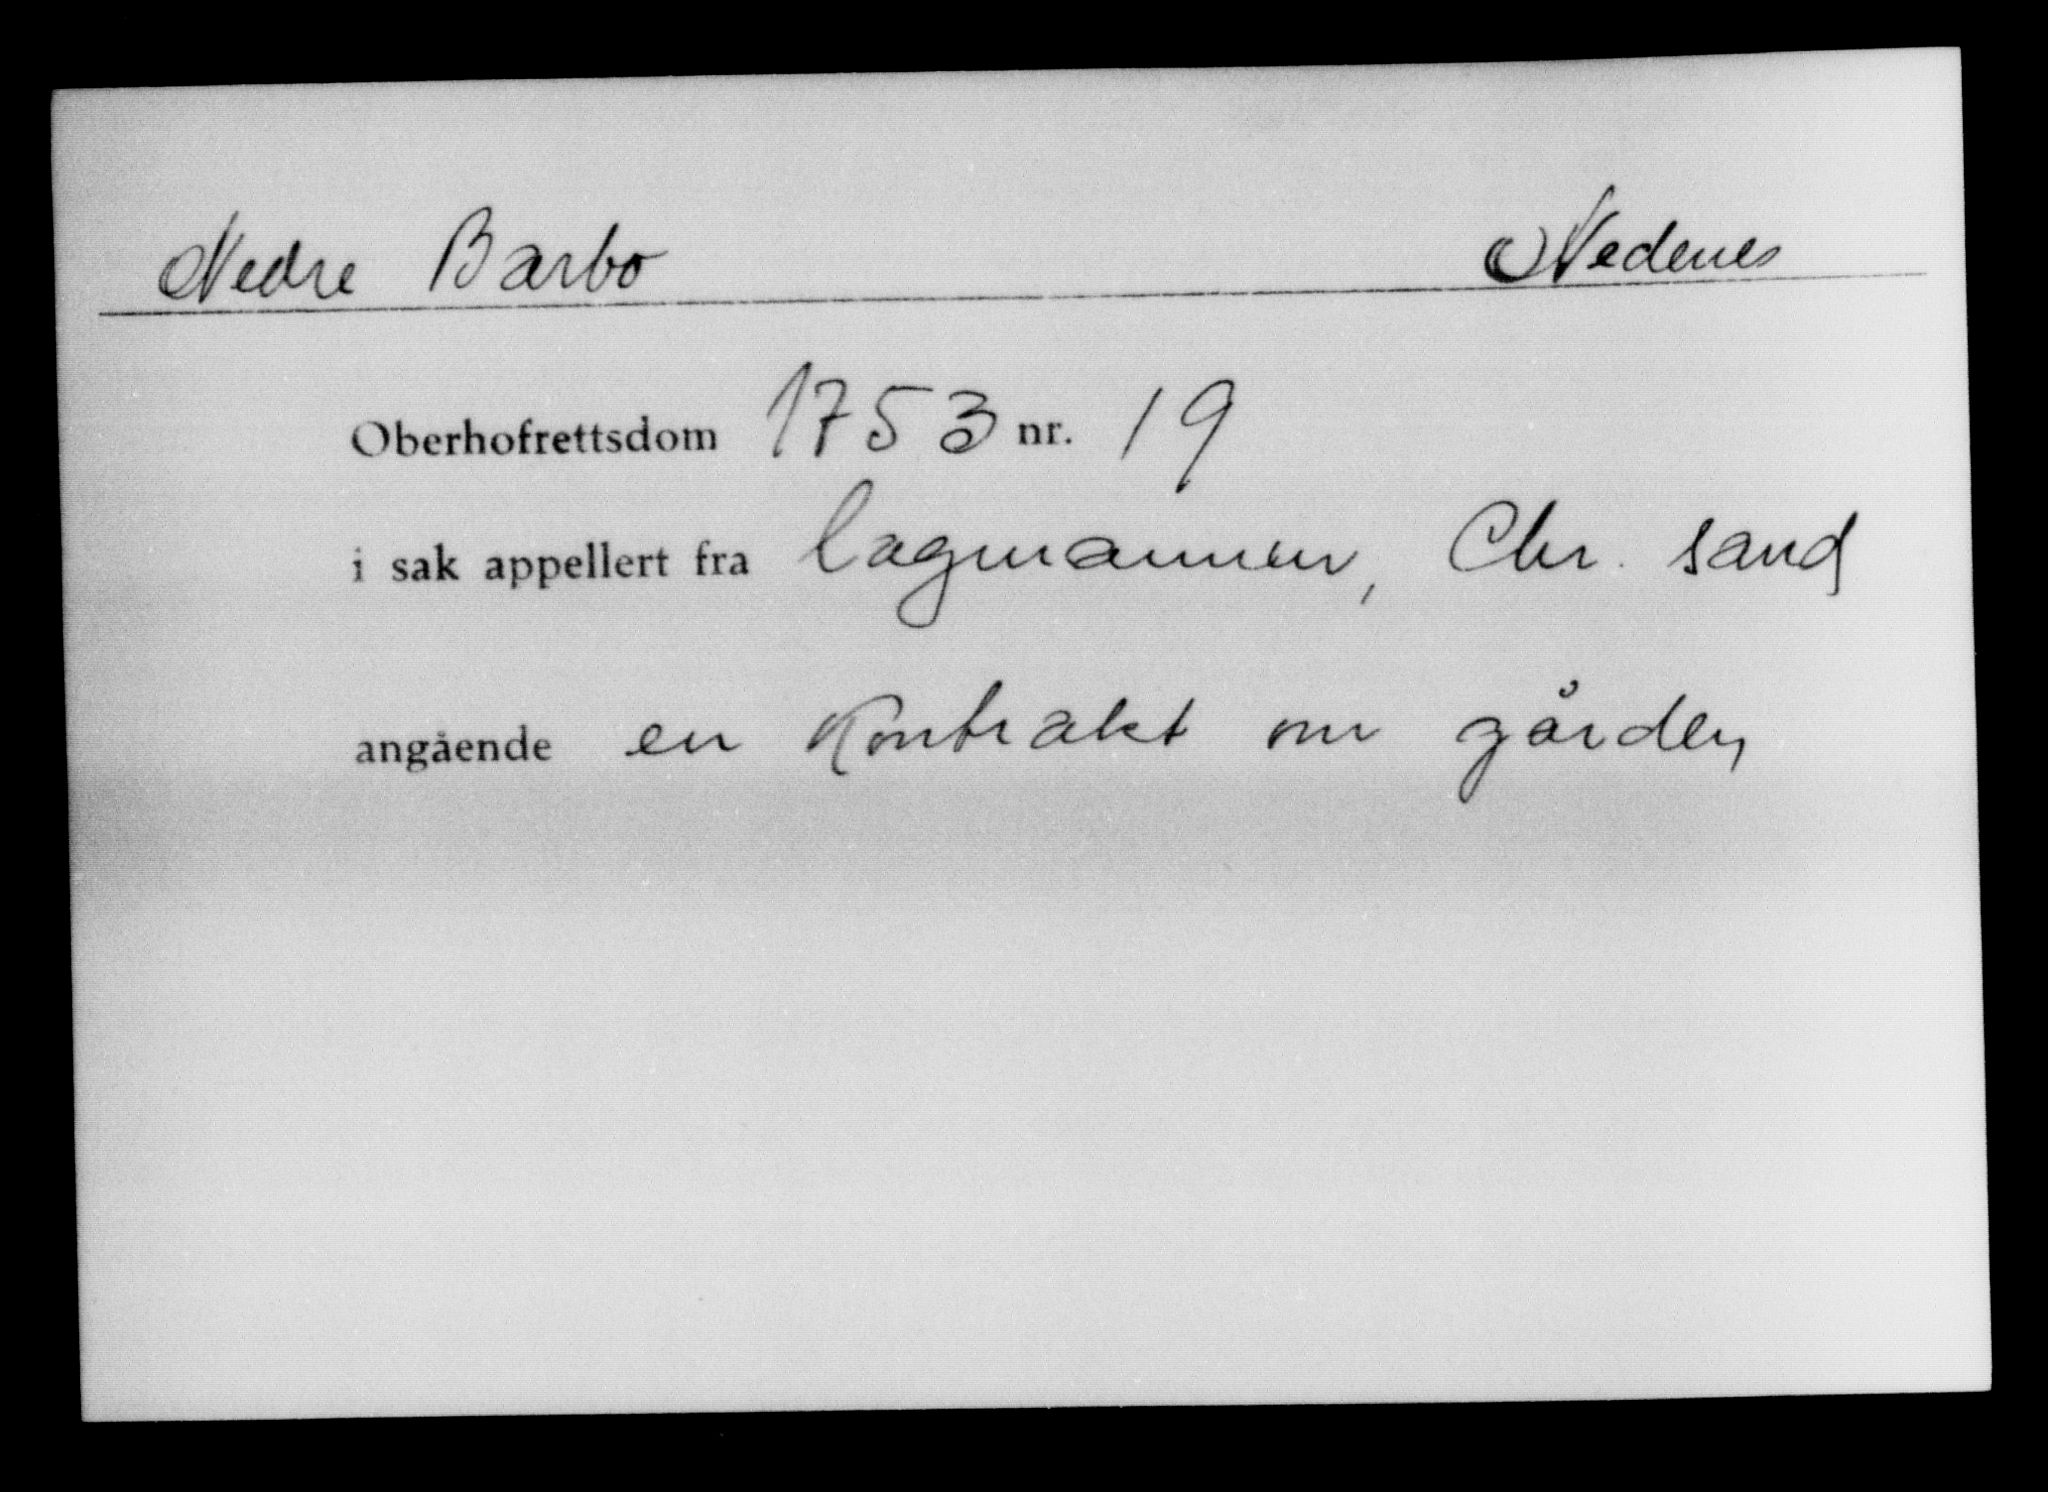 Nedre Barbo Nedenes
Oberhofrettsdom 1753 nr. 19
i sak appellert fra lagmannen, Chr. sand
angående en kontrakt om gården